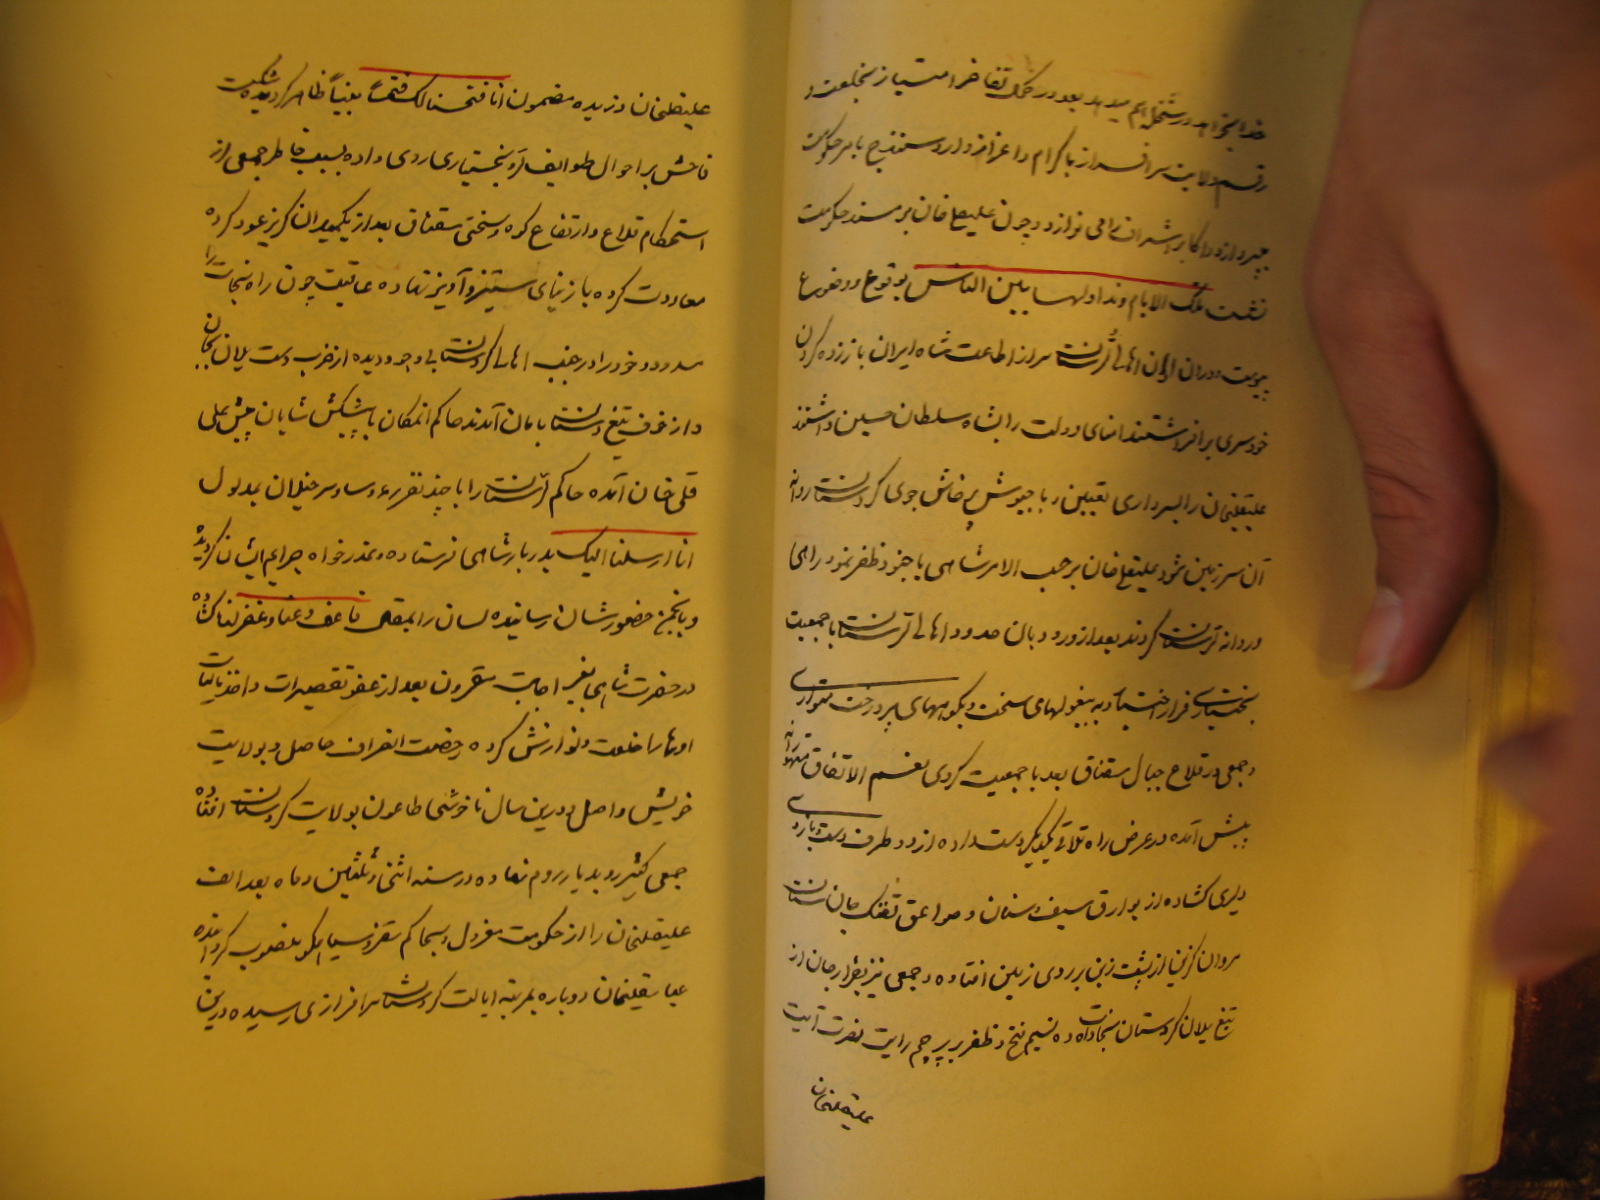 خدا بخواهد در شغله اهم میدهد بعد در محک تفاخر امتیاز بخلعت و
رقم ولایت سرافراز باکرام و اعزاز وارد سنندج بامر حکومت
چپردازد و اکابر و اشراف رامی نوازد و چون علیقلی خان بر مسند حکومت
نشست تلک الایام نداولها بین الناس بوقوع و وضوع
پیوست در آن اوان اهالی لرستان سر از اطاعت شاه ایران باز زده کردن
خودسری برافراشتند امنای دولت را بشاه سلطان حسین داشتند
علیقلیخان را بسرداری تعیین و با جیوش پرخاش جوی کردستان روانه
آن سرزمین نمود علیقلی خان بر حسب الامر شاهی با جنود ظفر نمود راهی
و روانه لرستان کردند بعد از ورود بان حدود اهالی لرستان با جمعیت
بختیاری فرار اختیار به بیغولهای سخت و بکوههای پر درخت متواری
و جمعی در قلاع جبال سقناق بعد با جمعیت کردی نعم الاتفاق متهورانه
پیش آمده در عرض راه تلاقی یکدیگر دست داده از دو طرف دست و بازوی
دلیری کشاده از بوارق سیف و سنان و صواعق تفنگ جان ستان
سروان گزین از پشت زین بر روی زمین افتاده و جمعی نیز بفرار جان از
تیغ یلان کردستان بنجات داده نسیم فتح و ظفر بر پرچم رایت نصرت آیت
علیقلیخان
علیقلیخان وزیده مضمون انا فتحنا لک فتحاً مبیناً ظاهر کردیده شکست
فاحش بر احوال طوایف لر و بختیاری روی داده بسبب خاطر جمعی از
استحکام قلاع و ارتفاع کوه و سختی سقناق بعد از یکمیدان گریز عود کرده
معاودت کرده باز بنای ستیز و آویز نهاده عاقبت چون راه نجات را
مسدود و خود را در عقب اهالی کردستان بی وجود دیده از ضرب دست یلان بجان
و از خوف تیغ دلستان بامان آمدند حاکم انمکان با پیشکش شایان پیش علی
قلی خان آمده حاکم لرستان را با چند نفر رؤسا و سرخیلان بمدلول
انا ارسلنا الیک بدربار شاهی فرستاده و عذرخواه جرایم ایشان کردید
و بانجمن حضور شان رسانیده لسان را بمقال فاعف عنا و اغفر لنا کشاده
در حضرت شاهی بعز اجابت مقرون بعد از عفو تقصیرات و اخذ مالیات
اونها را خلعت و نوازش کرده رخصت انصراف حاصل و بولایت
خویش واصل و درین سال ناخوشی طاعون بولایت کردستان افتاده
جمعی کثیر رو بدیار روم نهاده در سنه اثنی و ثلثین و ماه بعد الف
علیقلیخان را از حکومت معزول و بحاکم سقز و سیاهکوه منصوب کردانیده
عباسقلیخان دوباره بمرتبه ایالت کردستان سرافرازی رسیده درین